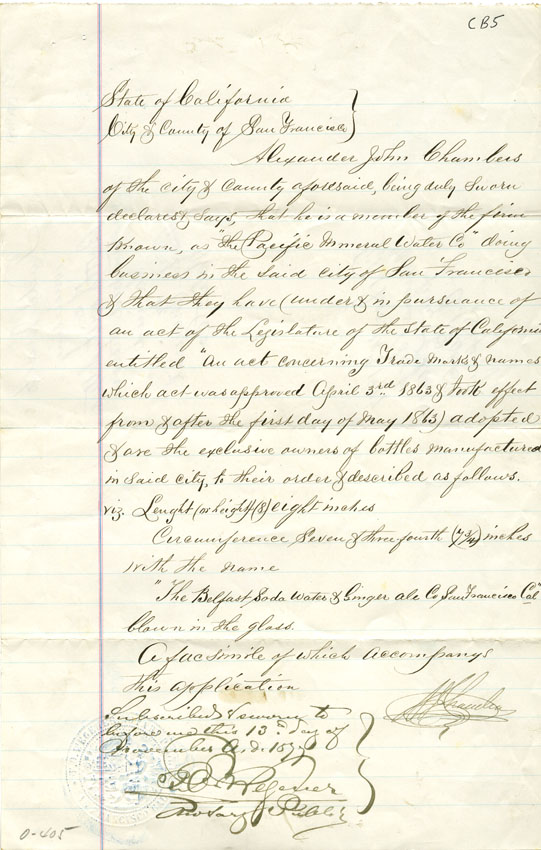 CB5
State of California
City & County of San Francisco
Alexander John Chambers
of the city & county aforesaid, being duly sworn
declares & says, that he is a member of the firm
known, as "The Pacific Mineral Water Co" doing
business in the said city of San Francisco
& that they have (under & in pursuance of
an act of the Legislature of the state of California
entitled "An act concerning Trade marks & names
which act was approved April 3rd 1863 & took effect
from & after the first day of May 1863) adopted
& are the exclusive owners of bottles manufactured
in said city, to their order & described as follows.
viz. Lenght (or height) (8) eight inches
Circumference Seven & three fourth (7 3/4) inches
with the name
"The Belfast Soda Water & Ginger ale Co, San Francisco Cal"
blown in the glass.
A facsimile of which accompanys
this application
Subscribed & sworn to
before me this 13th day of
November A.D.
Notary Public
0-405